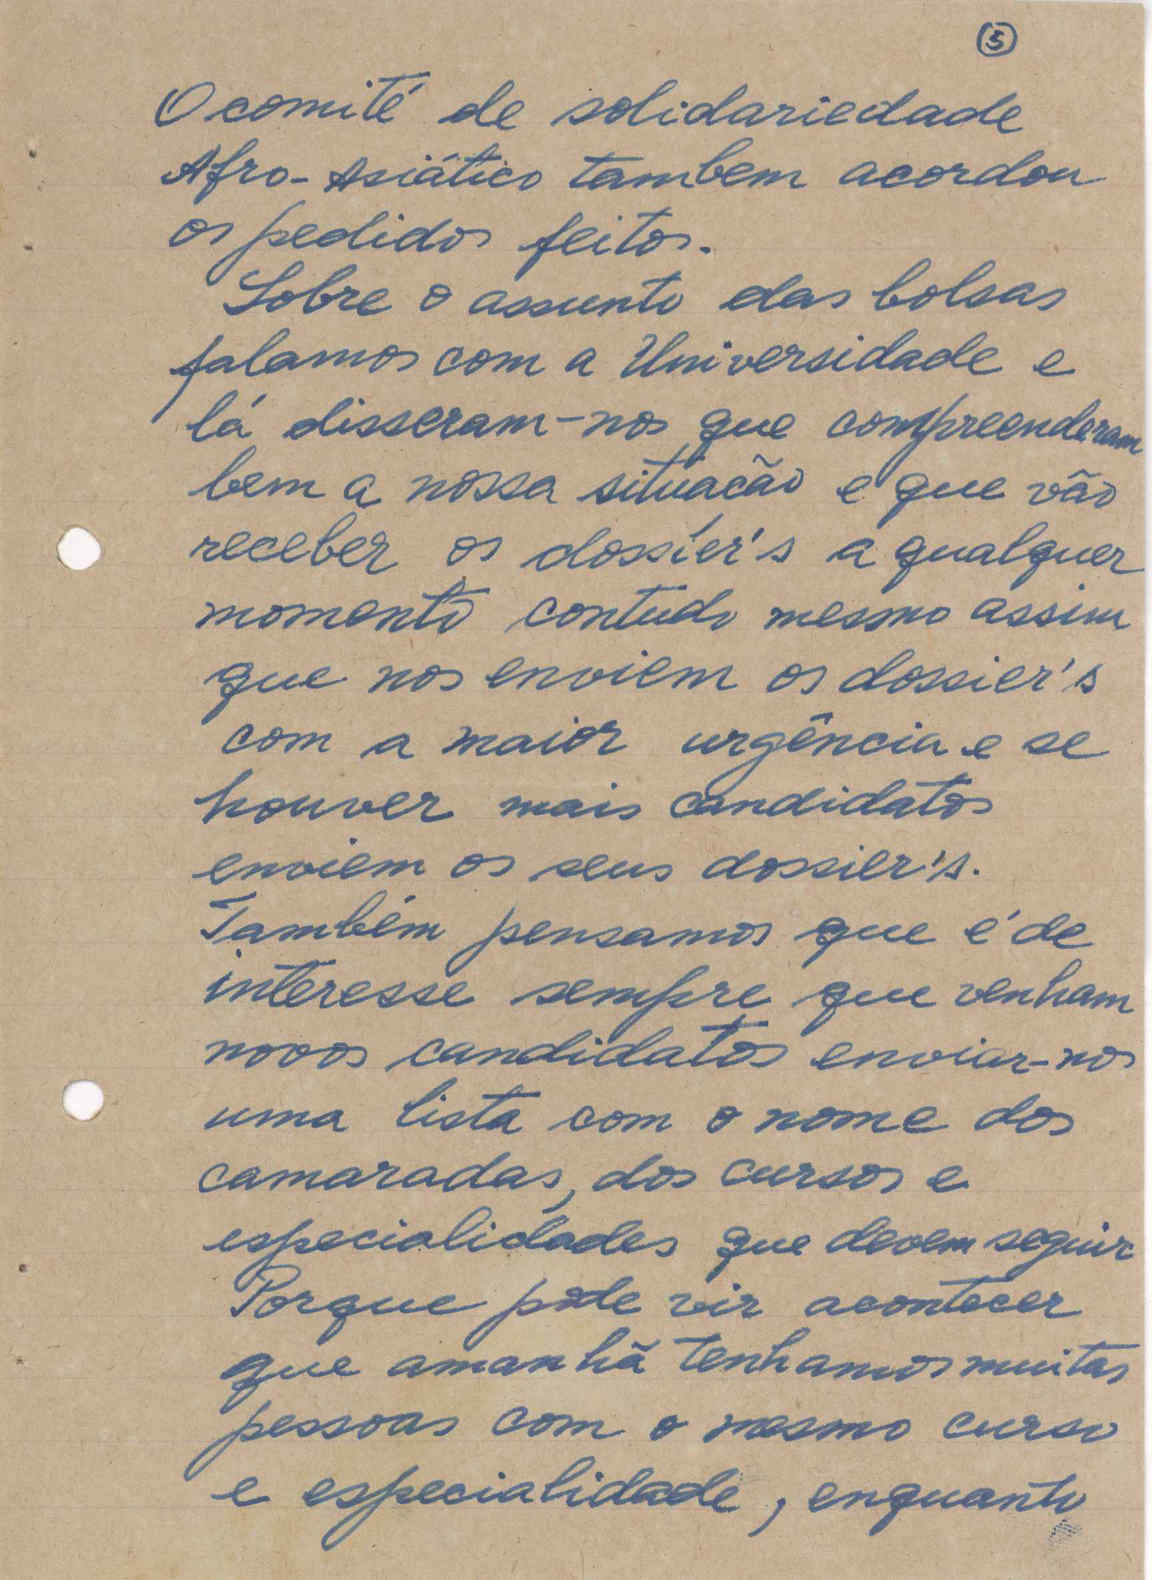 5
O comité de solidariedade
Afro-Asiático tambem acordou
os pedidos feitos.
Sobre o assunto das bolsas
falamos com a Universidade e
lá disseram-nos que compreenderam
bem a nossa situacão e que vão
receber os dossíer's a qualquer
momento contudo mesmo assim
que nos enviem os dossier's
com a maior urgência e se
houver mais candidatos
enviem os seus dossier's.
Também pensamos que é de
interesse sempre que venham
novos candidatos enviar-nos
uma lista com o nome dos
camaradas, dos cursos e
especialidades que devem seguir
Porque pode vir acontecer
que amanhã tenhamos muitas
pessoas com o mesmo curso
e especialidade, enquanto